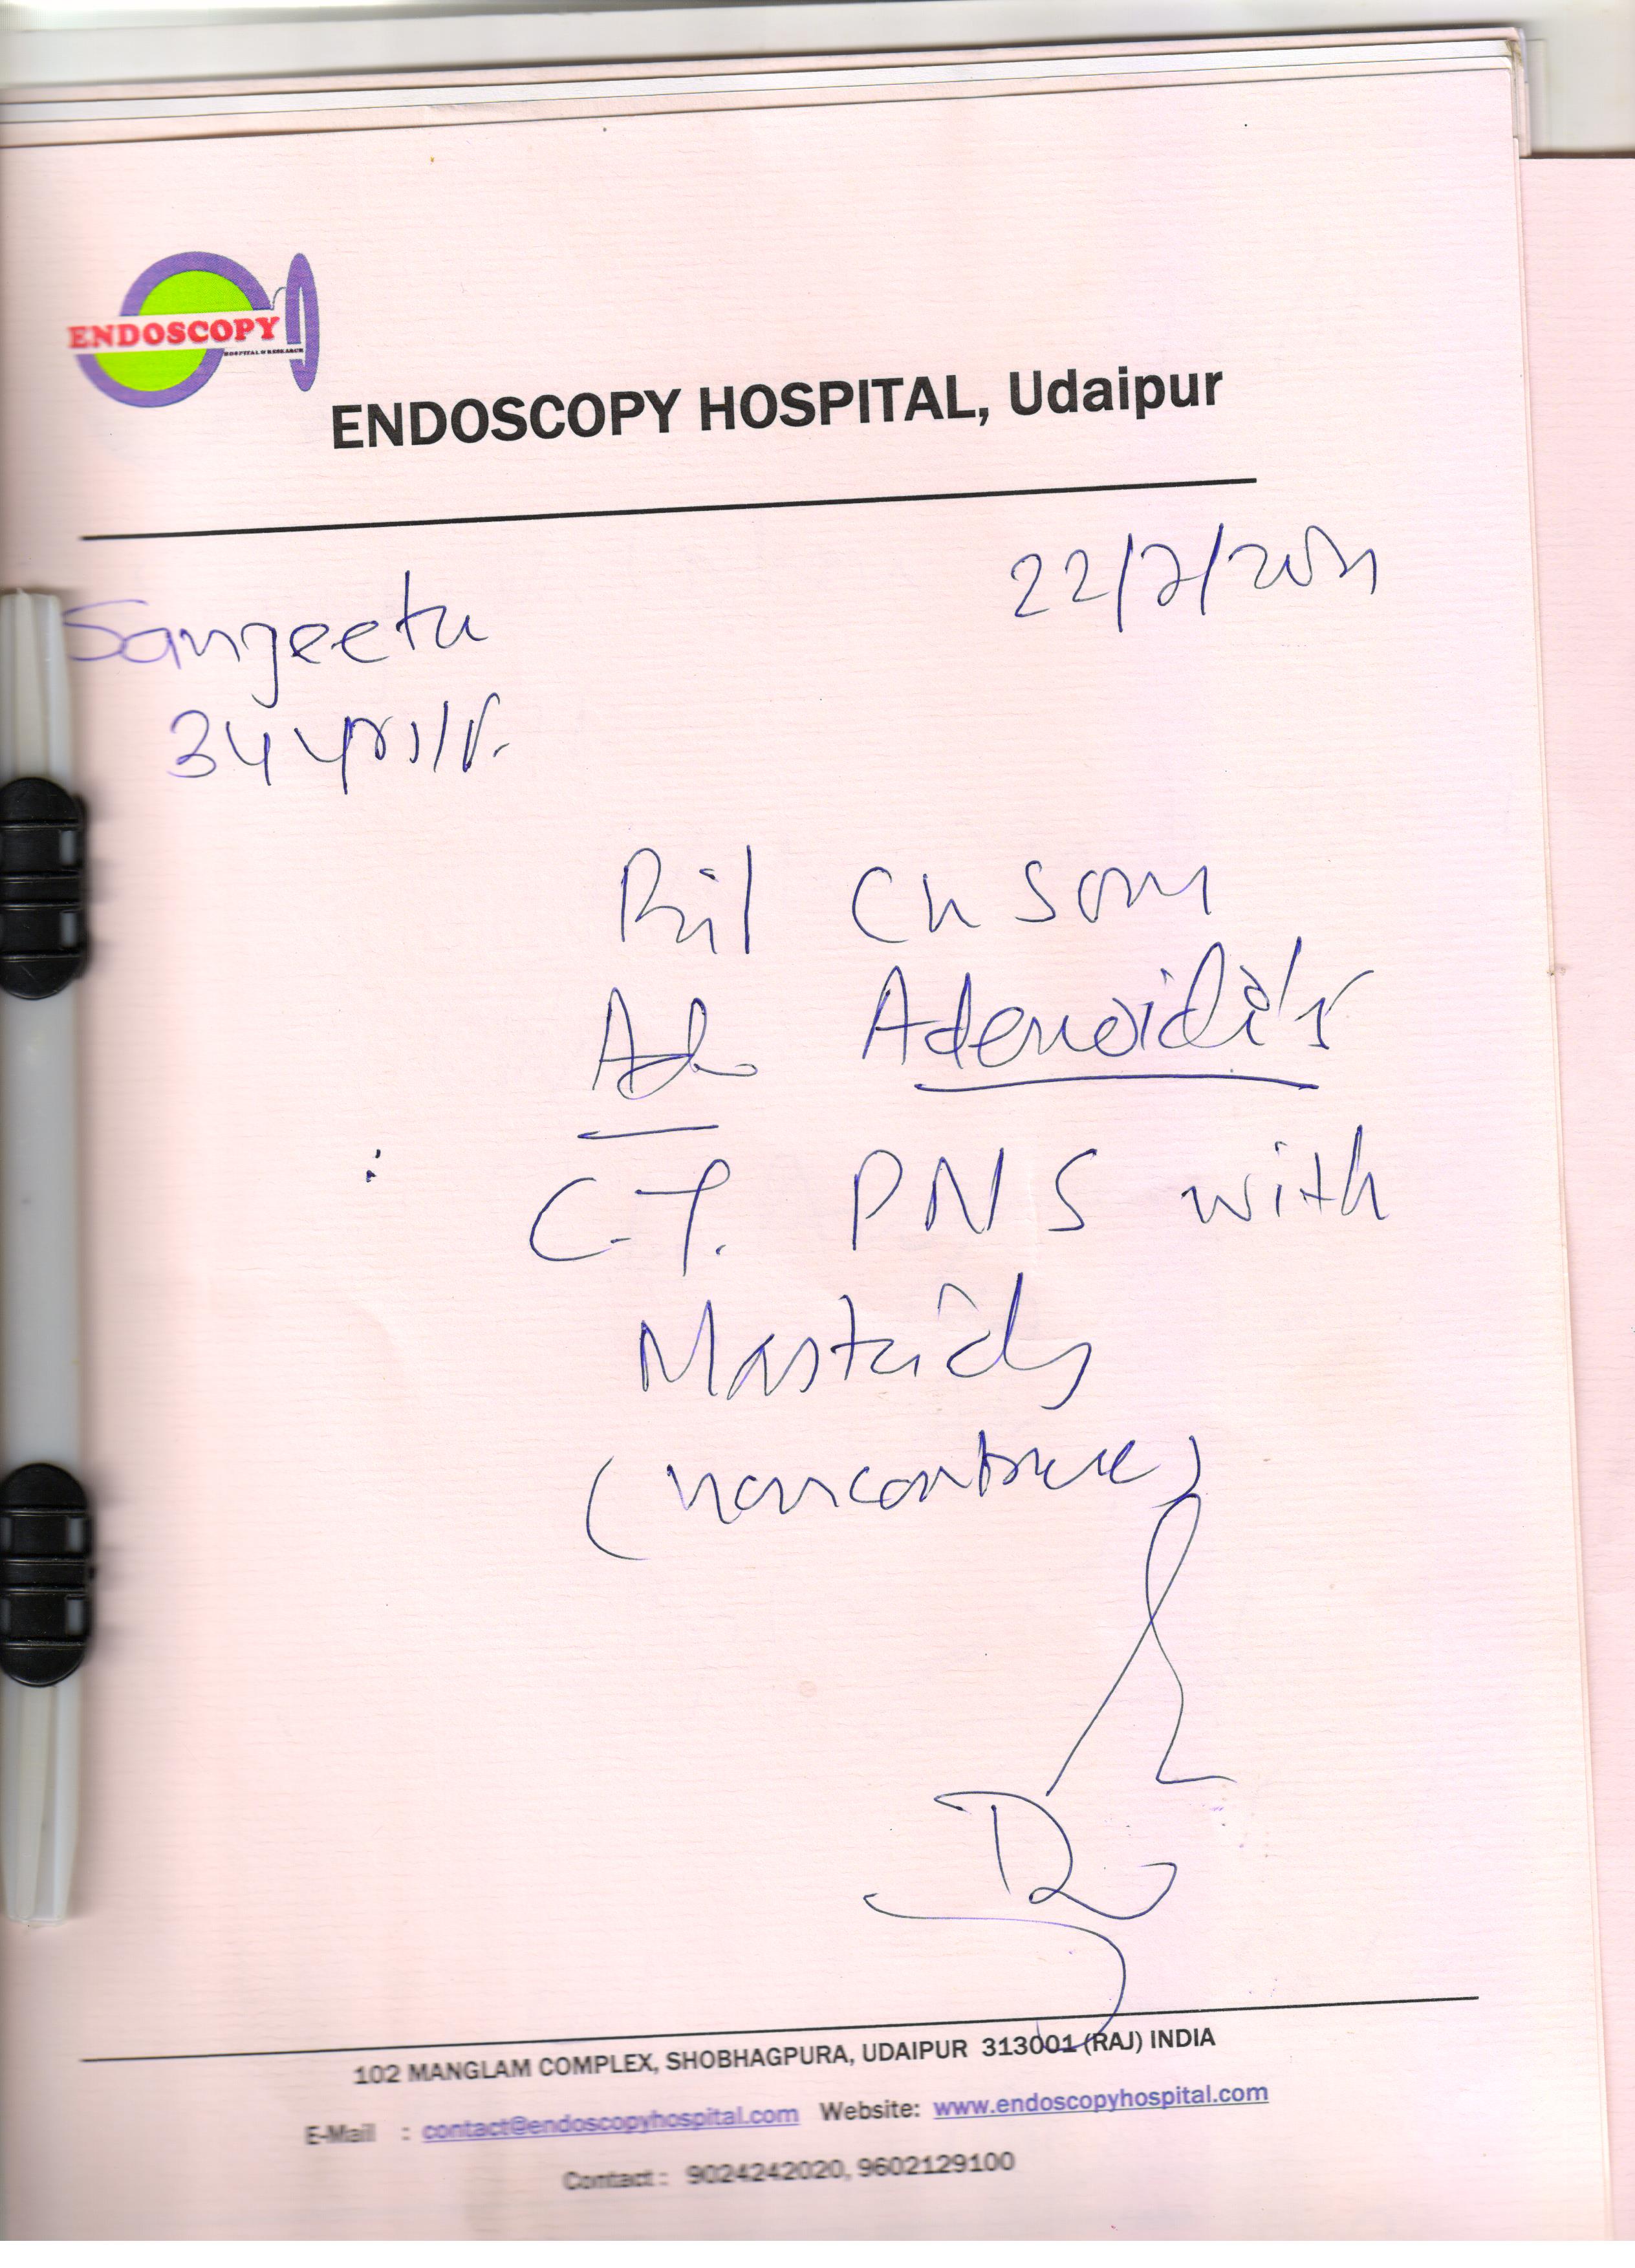 ENDOSCOPY
HOSPITAL & RESEARCH
ENDOSCOPY HOSPITAL, Udaipur
22/7/2011
Sangeeta
34 yrs/F.
Bil Ch SOM
Adenoiditis
C.T. PNS with
Mastoids
(noncontrast)
Dr
102 MANGLAM COMPLEX, SHOBHAGPURA, UDAIPUR 313001 (RAJ) INDIA
E-Mail : contact@endoscopyhospital.com Website: www.endoscopyhospital.com
Contact : 9024242020, 9602129100